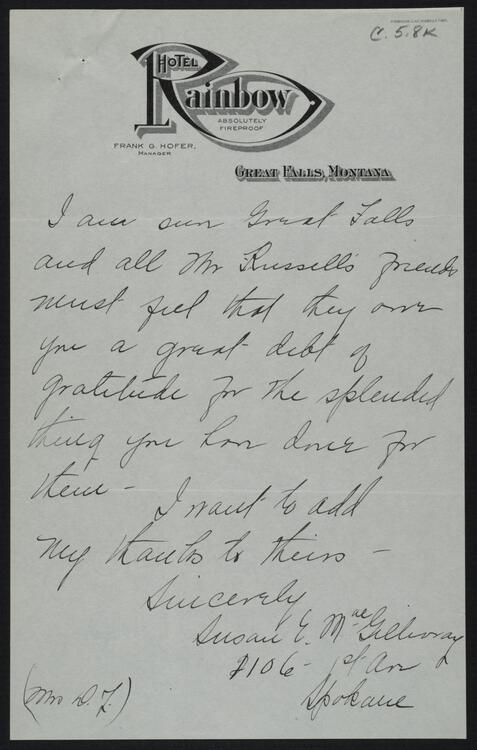 C.5.8k
HOTEL
Rainbow
ABSOLUTELY
FIREPROOF
FRANK G. HOFER,
MANAGER
GREAT FALLS, MONTANA
I am sure Great Falls
and all Mr Russell's friends
must feel that they owe
you a great debt of
gratitude for the splendid
thing you have done for
them -
I want to add
my thanks to theirs -
Sincerely
Susan E. MacGillivray
2106 - 1st Ave
Spokane
(Mrs D. F.)